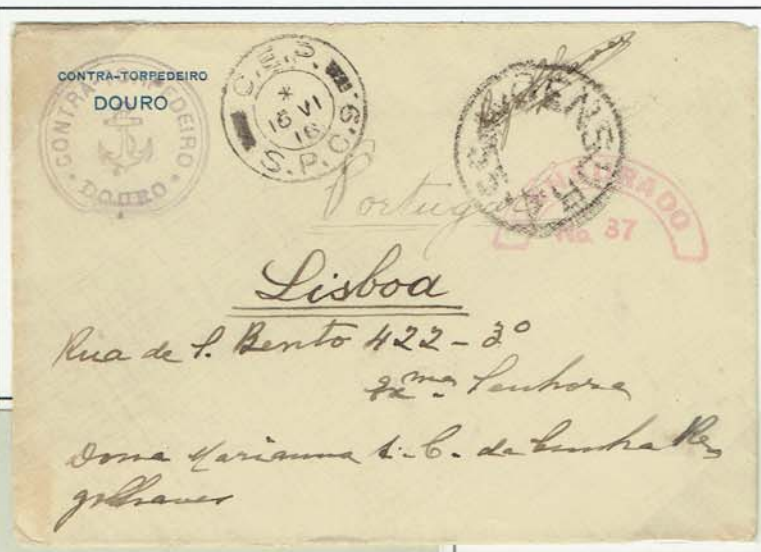 CONTRA-TORPEDEIRO
DOURO
CONTRA-TORPEDEIRO
DOURO
C.E.P.
*
15 VI
18
S.P.C. 6
CENSURA
CENSURADO
No. 37
Portugal
Lisboa
Rua de S. Bento 422-3º
Exma. Senhora
Dona Marianna C. da Cunha